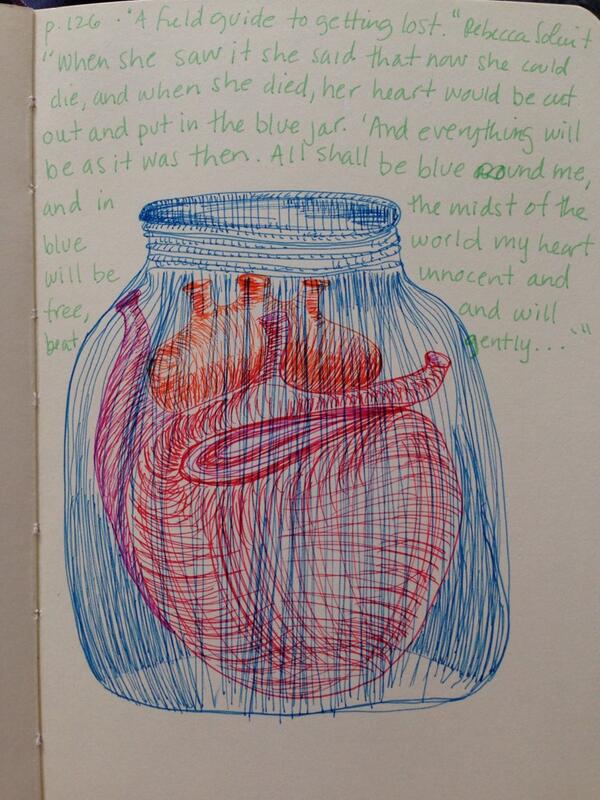 p.126 . "A field guide to getting lost." Rebecca Solnit
"When she saw it she said that now she could
die, and when she died, her heart would be cut
out and put in the blue jar. 'And everything will
be as it was then. All shall be blue round me,
and in the midst of the
blue world my heart
will be innocent and
free, and will
beat gently..."